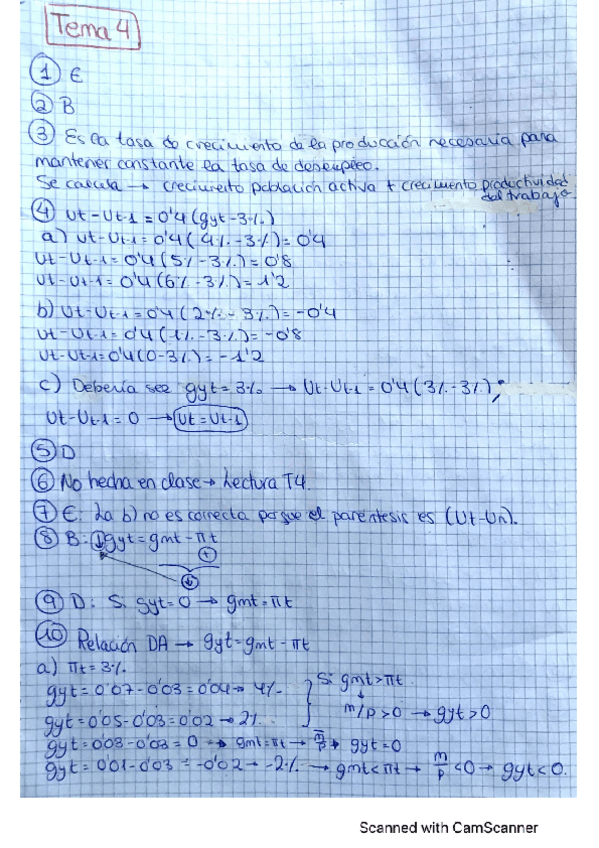 Tema 4
① E
② B
③ Es la tasa de crecimiento de la producción necesaria para
mantener constante la tasa de desempleo.
Se calcula → crecimiento población activa + crecimiento productividad
del trabajo
④ Ut-Ut-1 = 0'4 (gyt-3%)
a) Ut-Ut-1 = 0'4 (4%-3%) = 0'4
Ut-Ut-1 = 0'4 (5%-3%) = 0'8
Ut-Ut-1 = 0'4 (6%-3%) = 1'2
b) Ut-Ut-1 = 0'4 (2%-3%) = -0'4
Ut-Ut-1 = 0'4 (1%-3%) = -0'8
Ut-Ut-1 = 0'4 (0-3%) = -1'2
c) Debería ser gyt = 3% → Ut-Ut-1 = 0'4 (3%-3%);
Ut-Ut-1 = 0 → Ut = Ut-1
⑤ D
⑥ No hecha en clase → Lectura T4.
⑦ E: La b) no es correcta porque el paréntesis es (Ut-Un).
⑧ B: ↓gyt = gmt - πt
+
↓
⑨ D: Si gyt = 0 → gmt = πt
⑩ Relación DA → gyt = gmt - πt
a) πt = 3%
gyt = 0'07-0'03 = 0'04 → 4%
Si gmt > πt
↓
m/p > 0 → gyt > 0
gyt = 0'05-0'03 = 0'02 → 2%
gyt = 0'03-0'03 = 0 → gmt = πt → m/p → gyt = 0
gyt = 0'01-0'03 = -0'02 → -2% → gmt < πt → m/p < 0 → gyt < 0.
Scanned with CamScanner